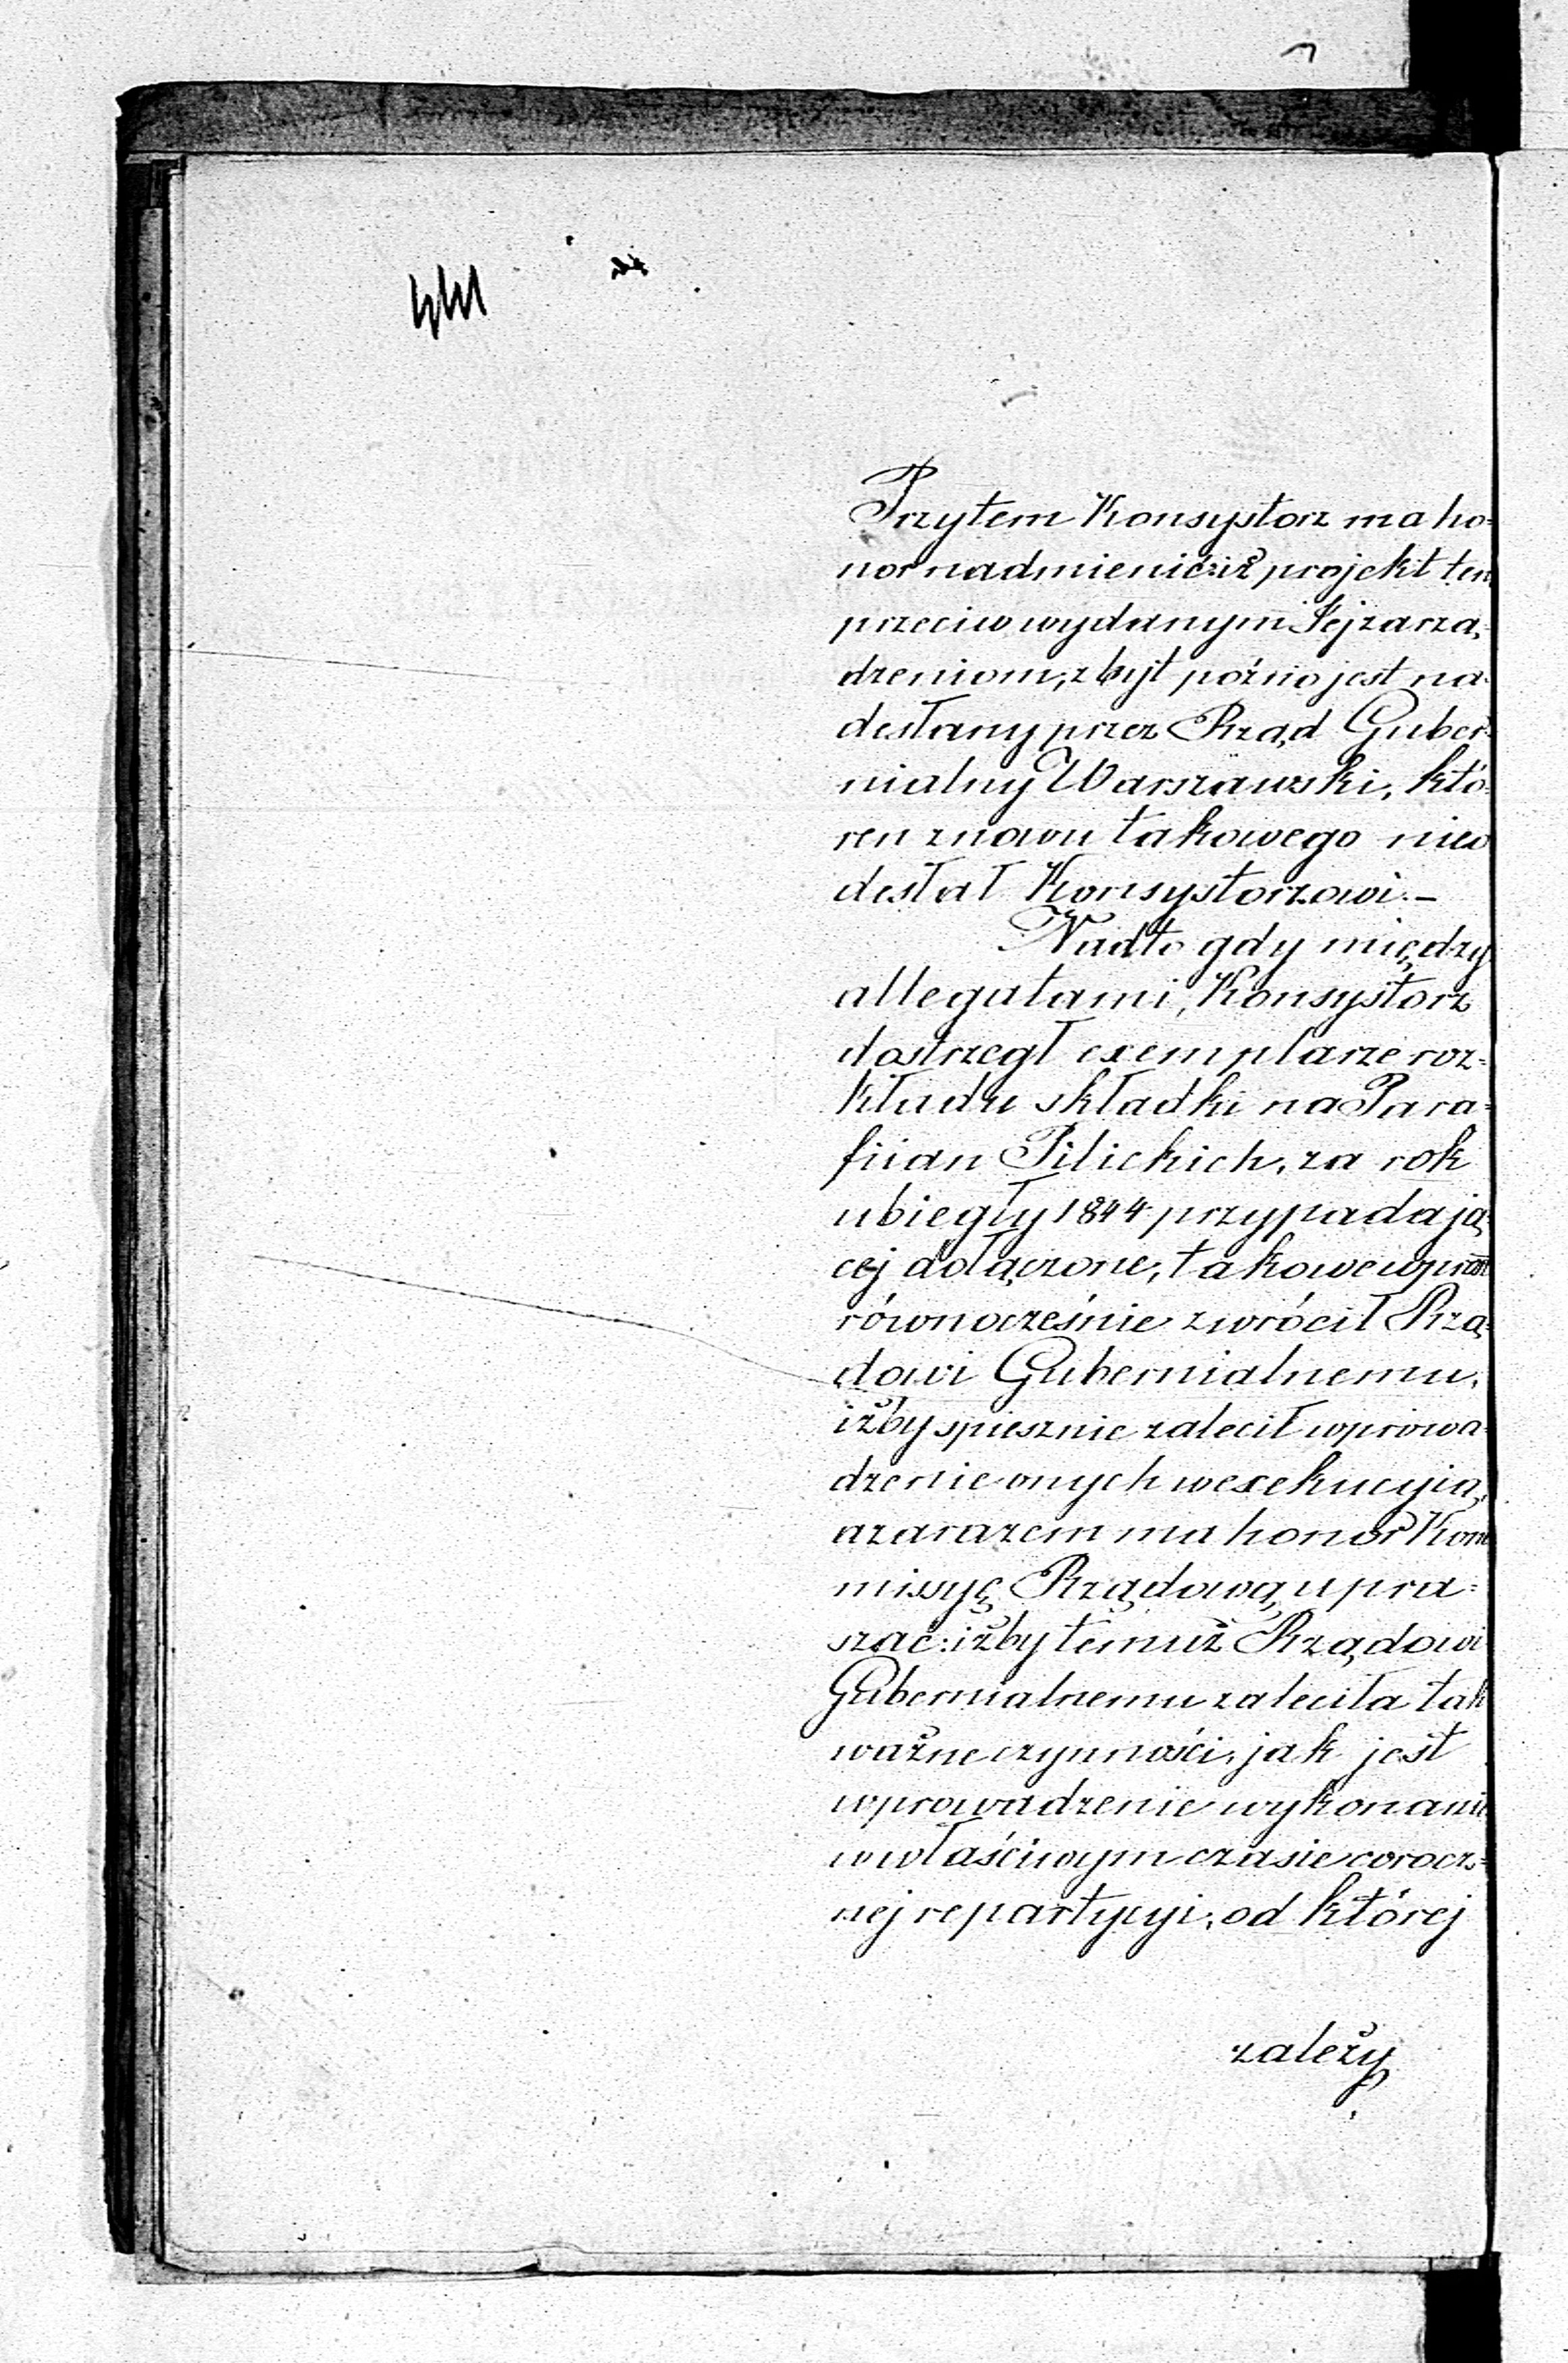 Przytem Konsystorz ma ho-
nor nadmienić: iż projekt ten
przeciw wydanym Jej zarzą-
dzeniom, zbyt późno jest na-
desłany przez Rząd Guber-
nialny Warszawski, któ-
ren znowu takowego nieo
desłał Konsystorzowi.-
Nadto gdy między
allegatami, Konsystorz
dostrzegł exemplarze roz-
kładu składki na Para-
fiian Pilickich, za rok
ubiegły 1844 przypadają-
cej dołączone, takowe wprost
równocześnie zwrócił Rzą-
dowi Gubernialnemu,
iżby spiesznie zalecił wprowa-
dzenie onych wexekucyią,
azarazem ma honor Kom
missyę Rządową upra-
szać: iżby temuż Rządowi
Gubernialnemu zaleciła tak
ważne czynności, jak jest
wprowadzenie wykonanie
wwłaściwym czasie corocz-
nej repartycyi, od której
zależy